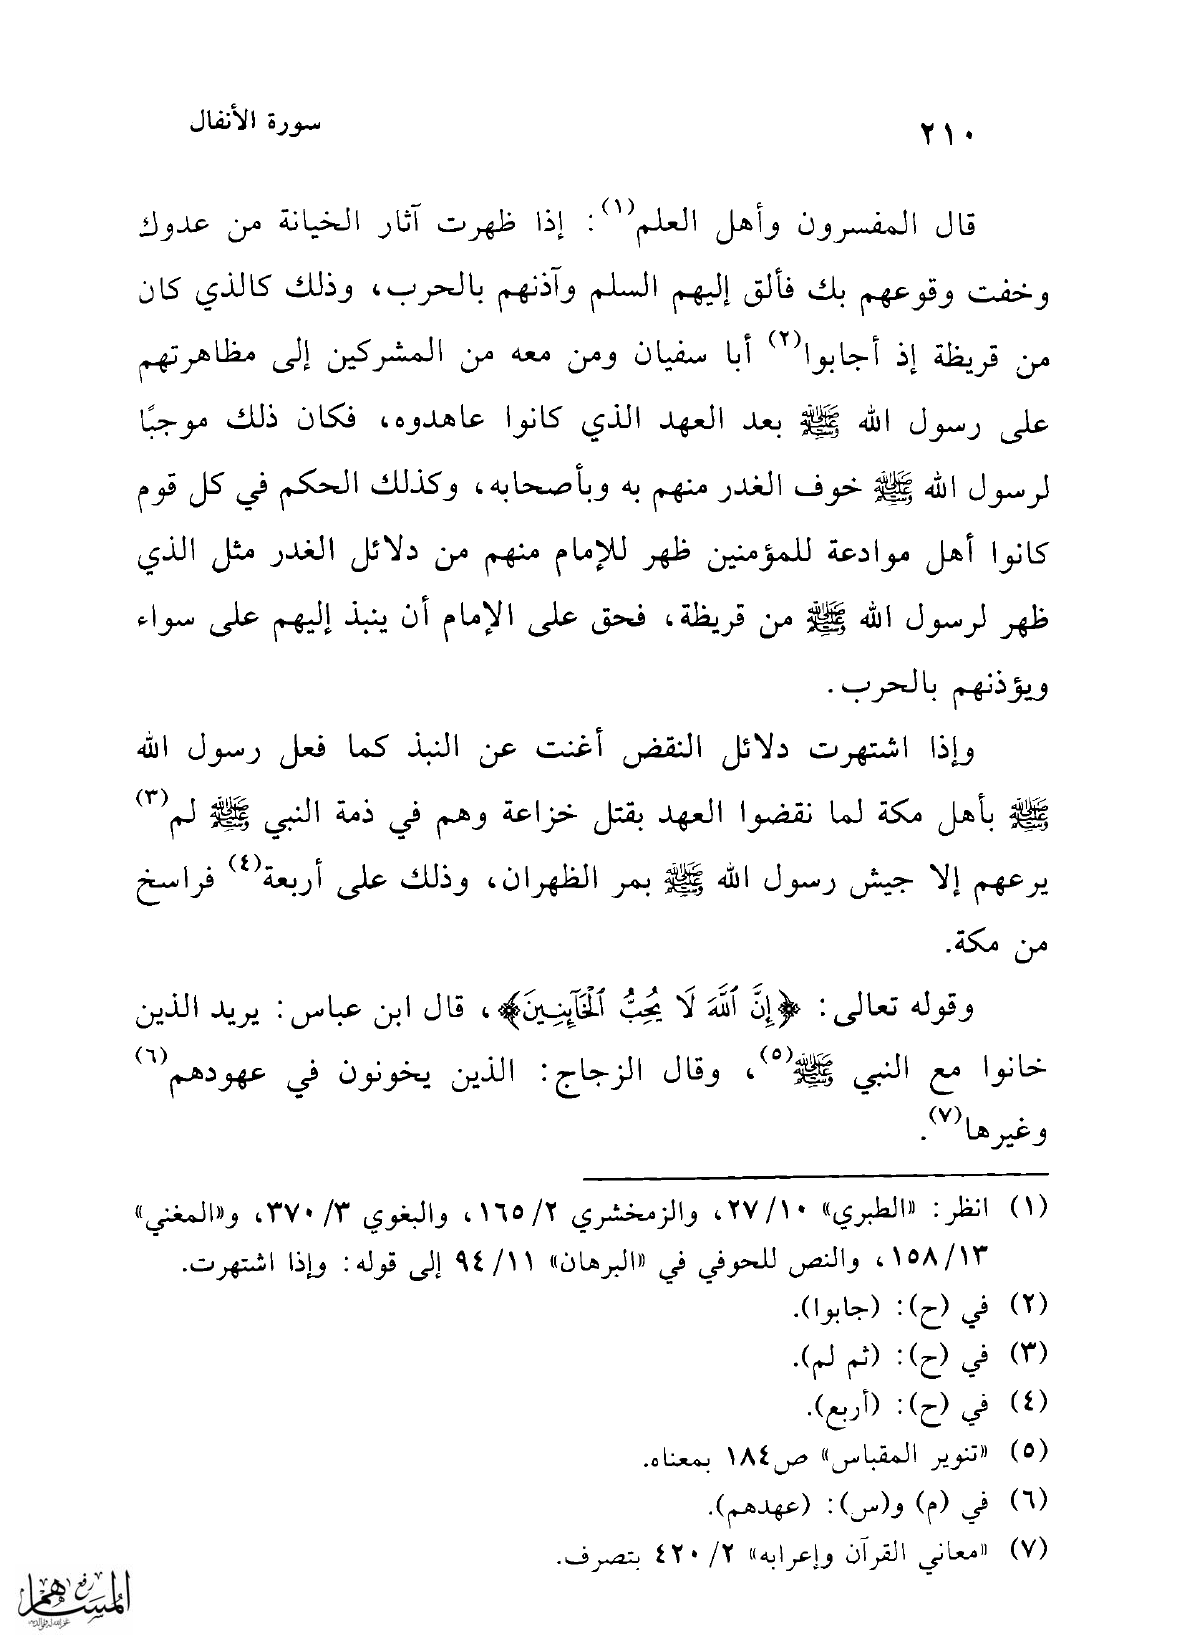 ٢١٠
سورة الأنفال
قال المفسرون وأهل العلم(١): إذا ظهرت آثار الخيانة من عدوك
وخفت وقوعهم بك فألق إليهم السلم وآذنهم بالحرب، وذلك كالذي كان
من قريظة إذ أجابوا(٢) أبا سفيان ومن معه من المشركين إلى مظاهرتهم
على رسول الله ﷺ بعد العهد الذي كانوا عاهدوه، فكان ذلك موجبًا
لرسول الله ﷺ خوف الغدر منهم به وبأصحابه، وكذلك الحكم في كل قوم
كانوا أهل موادعة للمؤمنين ظهر للإمام منهم من دلائل الغدر مثل الذي
ظهر لرسول الله ﷺ من قريظة، فحق على الإمام أن ينبذ إليهم على سواء
ويؤذنهم بالحرب.
وإذا اشتهرت دلائل النقض أغنت عن النبذ كما فعل رسول الله
ﷺ بأهل مكة لما نقضوا العهد بقتل خزاعة وهم في ذمة النبي ﷺ لم(٣)
يرعهم إلا جيش رسول الله ﷺ بمر الظهران، وذلك على أربعة(٤) فراسخ
من مكة.
وقوله تعالى: ﴿إِنَّ ٱللَّهَ لَا يُحِبُّ ٱلْخَآئِنِينَ﴾، قال ابن عباس: يريد الذين
خانوا مع النبي ﷺ(٥)، وقال الزجاج: الذين يخونون في عهودهم(٦)
وغيرها(٧).
(١) انظر: «الطبري» ١٠/ ٢٧، والزمخشري ٢/ ١٦٥، والبغوي ٣/ ٣٧٠، و«المغني»
١٣/ ١٥٨، والنص للحوفي في «البرهان» ١١/ ٩٤ إلى قوله: وإذا اشتهرت.
(٢) في (ح): (جابوا).
(٣) في (ح): (ثم لم).
(٤) في (ح): (أربع).
(٥) «تنوير المقباس» ص١٨٤ بمعناه.
(٦) في (م) و(س): (عهدهم).
(٧) «معاني القرآن وإعرابه» ٢/ ٤٢٠ بتصرف.